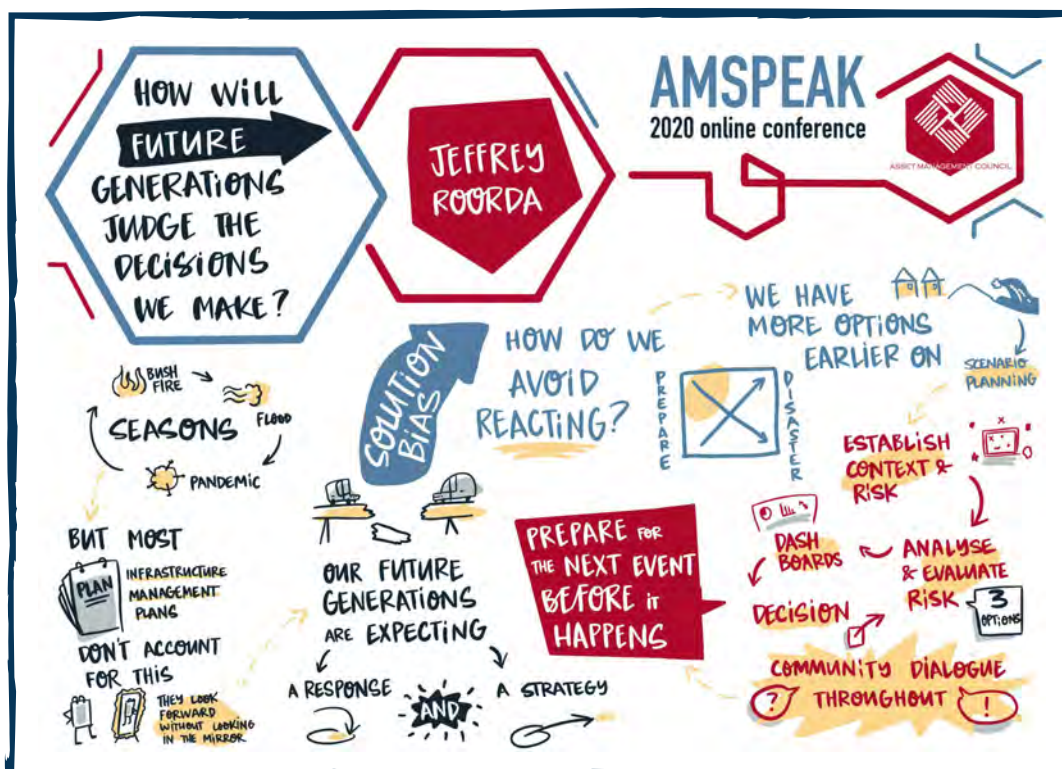 HOW WILL
FUTURE
GENERATIONS
JUDGE THE
DECISIONS
WE MAKE?
JEFFREY
ROORDA
AMSPEAK
2020 online conference
ASSET MANAGEMENT COUNCIL
BUSH
FIRE
FLOOD
SEASONS
PANDEMIC
BUT MOST
PLAN
INFRASTRUCTURE
MANAGEMENT
PLANS
DON'T ACCOUNT
FOR THIS
THEY LOOK
FORWARD
WITHOUT LOOKING
IN THE MIRROR
SOLUTION
BIAS
OUR FUTURE
GENERATIONS
ARE EXPECTING
A RESPONSE
AND
A STRATEGY
HOW DO WE
AVOID
REACTING?
WE HAVE
MORE OPTIONS
EARLIER ON
PREPARE
DISASTER
SCENARIO
PLANNING
ESTABLISH
CONTEXT &
RISK
ANALYSE
& EVALUATE
RISK
3
OPTIONS
DASH
BOARDS
DECISION
COMMUNITY DIALOGUE
THROUGHOUT
?
!
PREPARE FOR
THE NEXT EVENT
BEFORE IT
HAPPENS